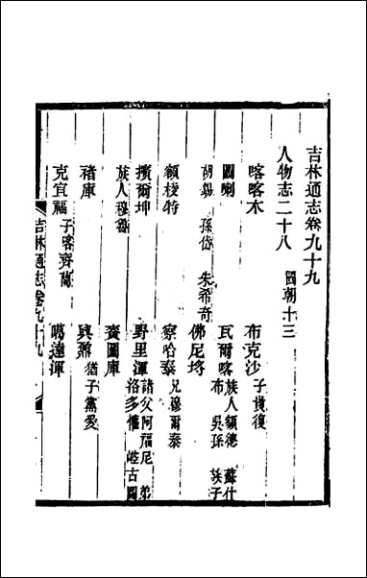 吉林通志卷九十九
人物志二十八 國朝十三
喀喀木 布克沙 子貴復
圖喇 瓦爾喀 族人額德 蘇什布 吳孫 族子
胡錫 孫岱 朱希奇 佛尼埒
額楞特 察哈泰 兄穆爾泰
擴爾坤 野里渾 諸父阿福尼 弟洛多懽
族人穆魯 賚圖庫
褚庫 興鼐 猶子黨愛
克宜福 子喀齊蘭 噶達渾
吉林通志卷九十九